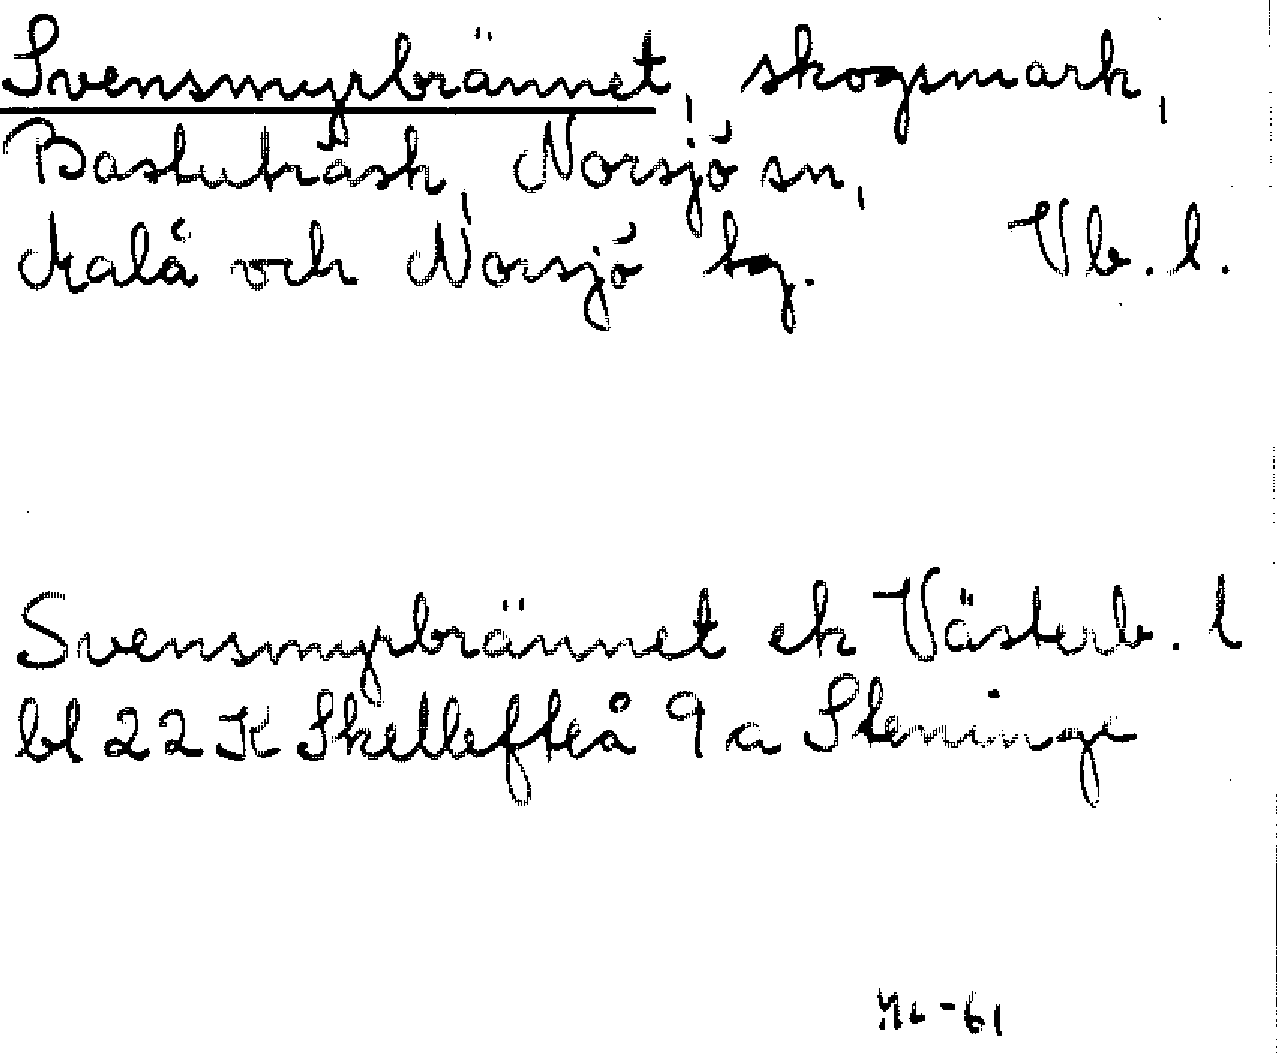 Svensmyrbrännet, skogsmark,
Bastuträsk, Norsjö sn,
Malå och Norsjö tg. Vb. l.
Svensmyrbrännet ek Västerb. l
bl 22 K Skellefteå 9 a Steninge
-61